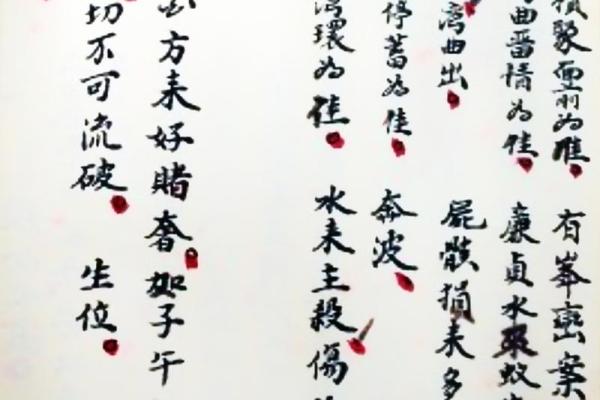 積聚面前為準
有峯巒案
曲番情為佳
廉貞水來蚁
离曲出
屍骸損来多
停蓄為佳
奔波
灣環為佳
水来主殺傷
方来好賭奢如子午
切不可流破
生位